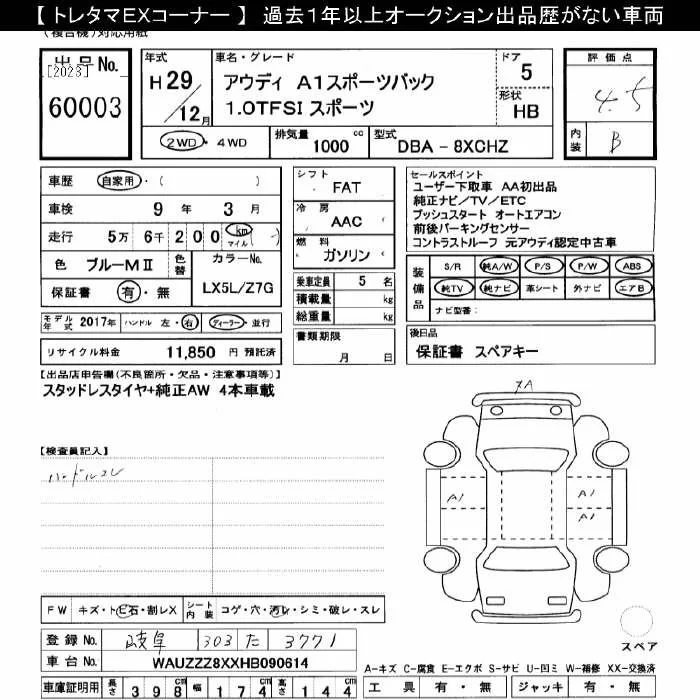 【トレタマEXコーナー】 過去1年以上オークション出品歴がない車両
(複合機)対応用紙
出品No.
[2023]
60003
年式
H29/12月
車名・グレード
アウディ A1スポーツバック
1.0TFSI スポーツ
ドア
5
形状
HB
評価点
4.5
内装
B
2WD・4WD
排気量
1000 cc
型式
DBA - 8XCHZ
車歴 自家用・( )
車検 9年 3月
走行 5万 6千 2 0 0 km マイル
色 ブルーMⅡ
色替
カラーNo.
LX5L/Z7G
保証書 有・無
モデル年式 2017年 ハンドル 左・右 ディーラー・並行
リサイクル料金 11,850 円 預託済
シフト
FAT
冷房
AAC
燃料
ガソリン
乗車定員 5 名
積載量 kg
総重量 kg
書類期限
月 日
セールスポイント
ユーザー下取車 AA初出品
純正ナビ/TV/ETC
プッシュスタート オートエアコン
前後パーキングセンサー
コントラストルーフ 元アウディ認定中古車
装備品
S/R 純A/W P/S P/W ABS
純TV 純ナビ 革シート 外ナビ エアB
ナビ型番:
後日品
保証書 スペアキー
【出品店申告欄(不良箇所・欠品・注意事項等)】
スタッドレスタイヤ+純正AW 4本車載
【検査員記入】
ハンドルスレ
XA
A1
A1
A1
スペア
FW キズ・トビ石・割レX
シート内装 コゲ・穴・汚レ・シミ・破レ・スレ
登録No. 岐阜 303 た 3771
車台No. WAUZZZ8XXHB090614
車庫証明用 長さ 398cm 幅 174cm 高さ 144cm
A-キズ C-腐食 E-エクボ S-サビ U-凹ミ W-補修 XX-交換済
工具 有・無 ジャッキ 有・無